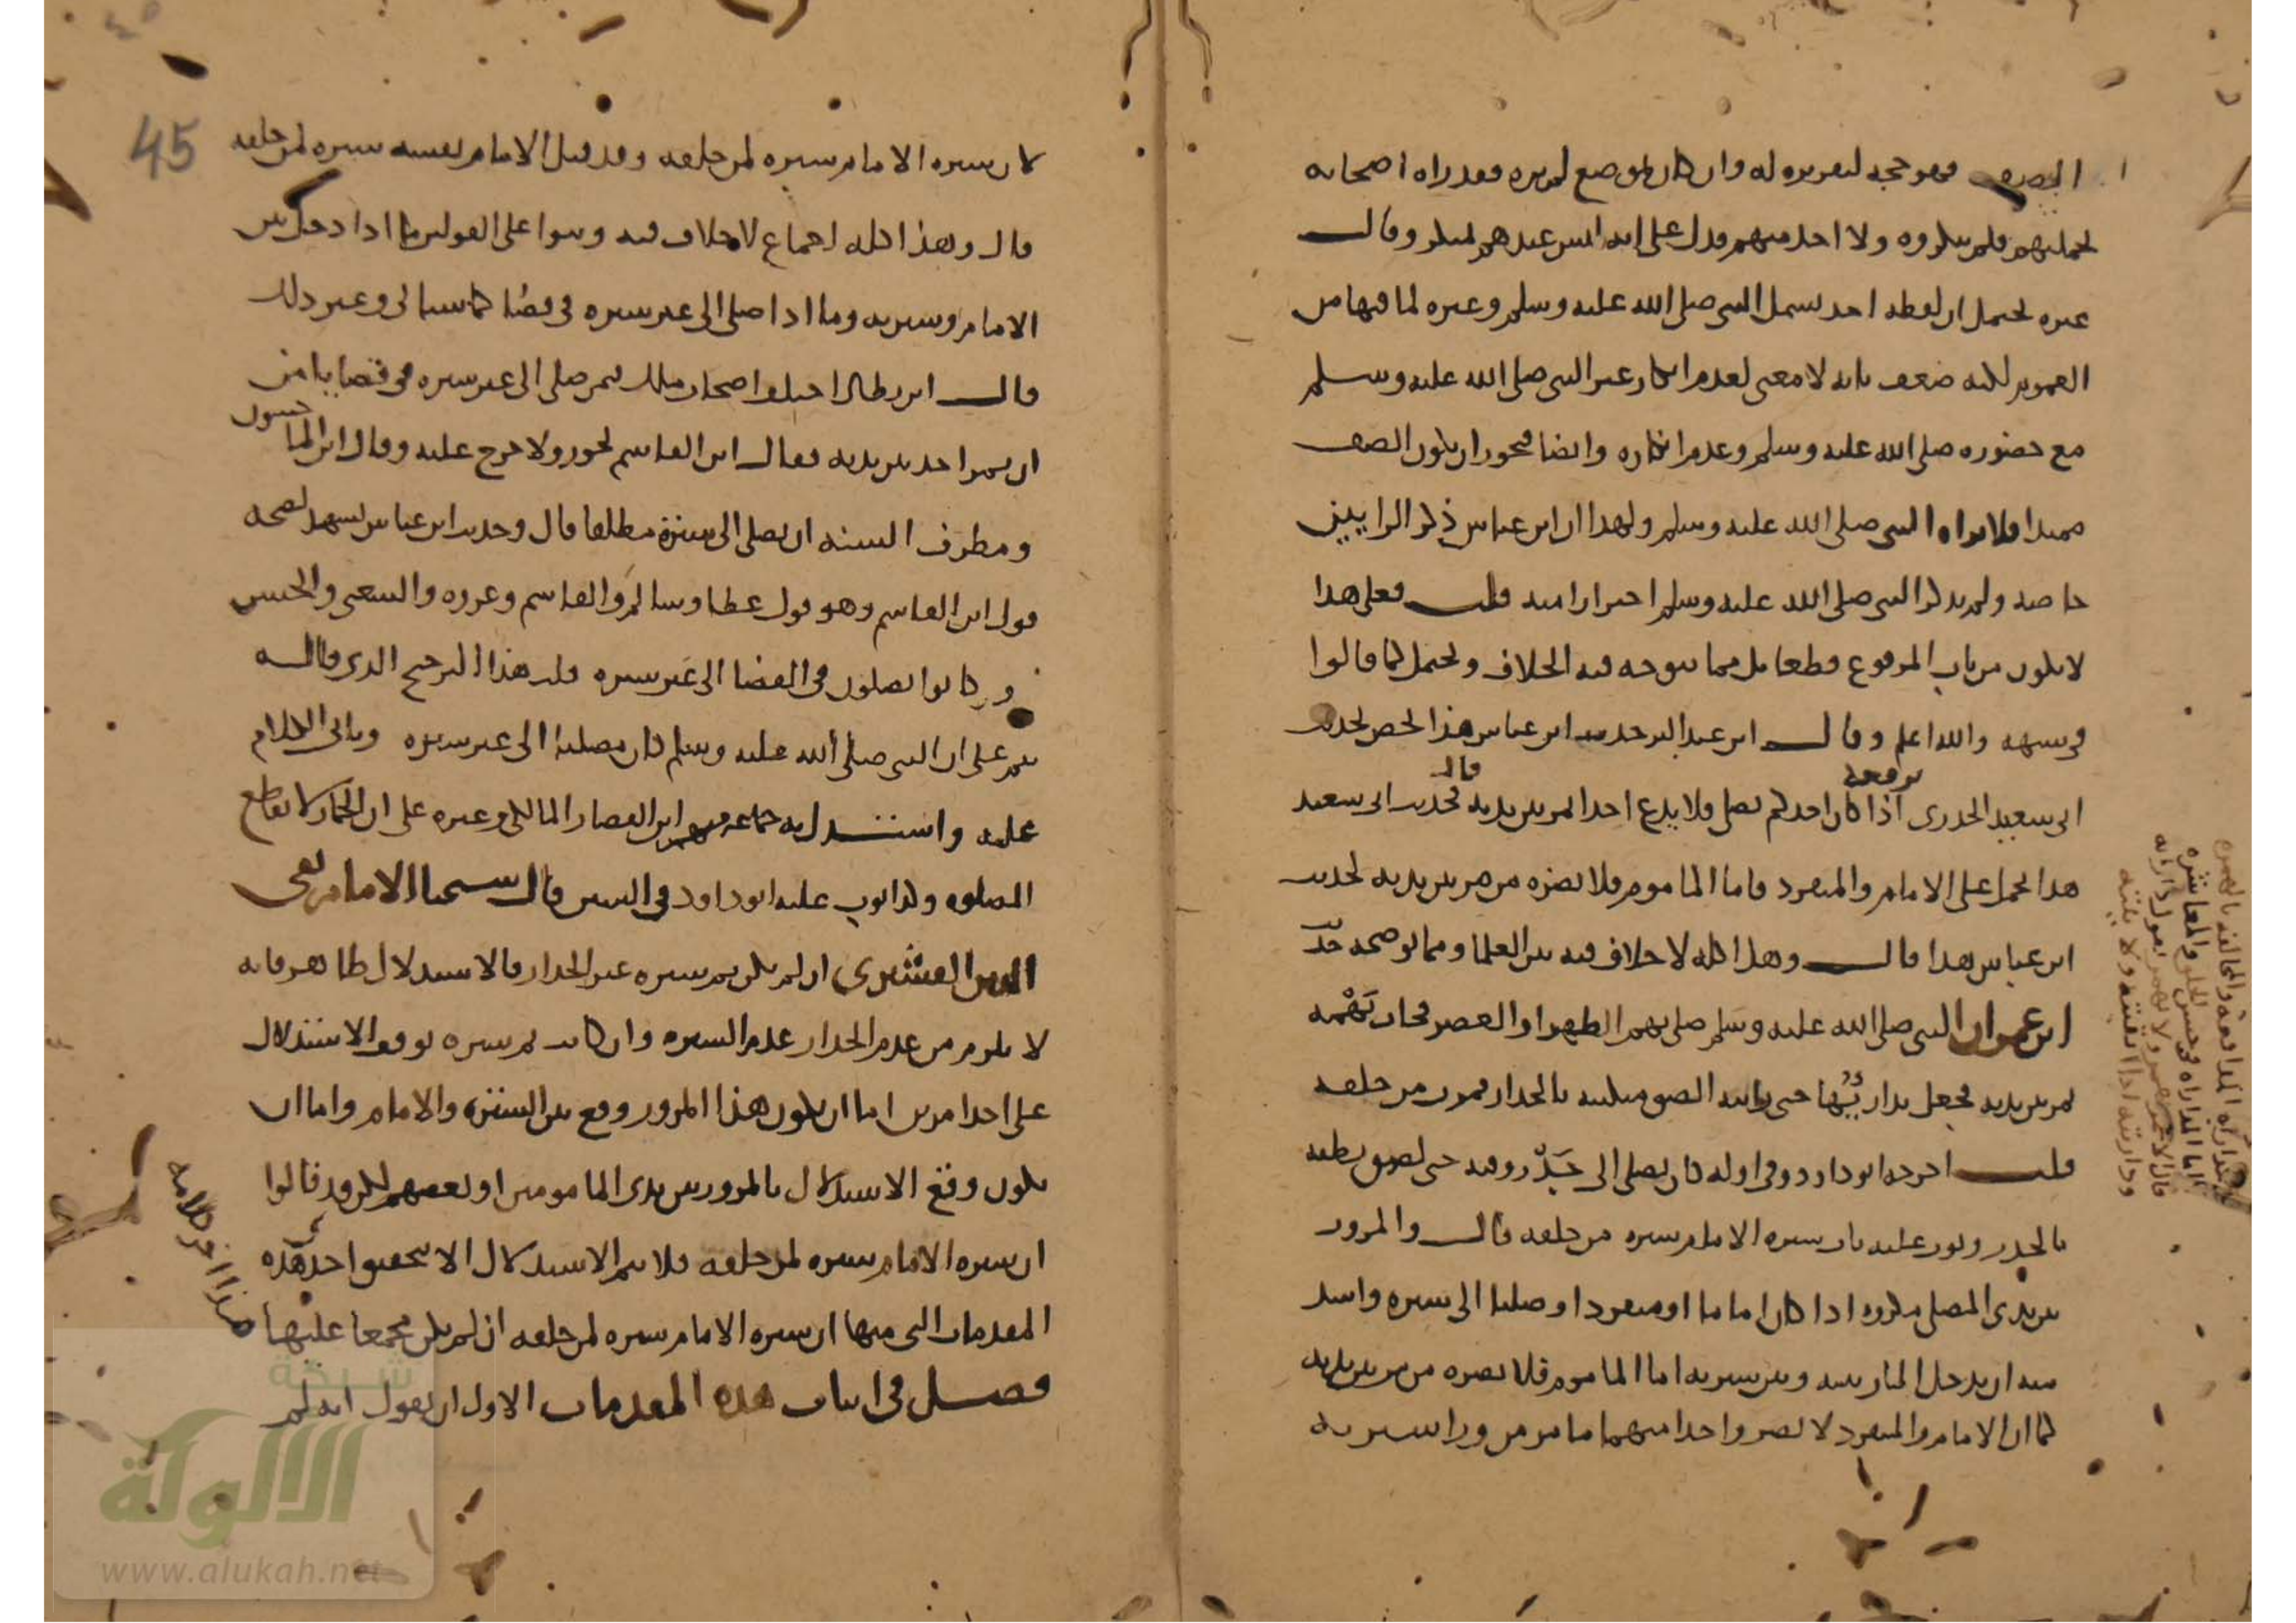 الصف فهو حجة لتقريره له وان كان لموضع لم يره فقد راه اصحابه
بجملتهم فلم ينكروه ولا احد منهم فدل على انه ليس عندهم بمنكر وقال
غيره يحتمل ان لفظة احد تشمل النبي صلى الله عليه وسلم وغيره لما فيها من
العموم لكنه ضعف بانه لا معنى لعدم انكار غير النبي صلى الله عليه وسلم
مع حضوره صلى الله عليه وسلم وعدم انكاره وايضا فيجوز ان يكون الصف
ممتدا فلا يراه النبي صلى الله عليه وسلم ولهذا ان ابن عباس ذكر الرايين
خاصة ولم يذكر النبي صلى الله عليه وسلم احترازا منه قلت فعلى هذا
لا يكون من باب المرفوع قطعا بل مما يتوجه فيه الخلاف ويحتمل كما قالوا
في شبهه والله اعلم وقال ابن عبد البر حديث ابن عباس هذا يخص بحديث
ابي سعيد الخدري يرفعه اذا كان احدكم يصلي فلا يدع احدا يمر بين يديه قال فحديث ابي سعيد
هذا يحمل على الامام والمنفرد فاما الماموم فلا يضره من مر بين يديه لحديث
ابن عباس هذا قال وهذا كله لا خلاف فيه بين العلما ومما يوضحه حديث
ابن عمر ان النبي صلى الله عليه وسلم صلى بهم الظهر او العصر فجات بهمة
لتمر بين يديه فجعل يدارئها حتى رايته الصق منكبيه بالجدار فمرت من خلفه
قلت اخرجه ابو داود وفي اوله كان يصلي الى جدر وفيه حتى لصق بطنه
بالجدر وبوب عليه باب سترة الامام سترة من خلفه قال والمرور
بين يدي المصلي مكروه اذا كان اماما او منفردا وصليا الى سترة واشد
منه ان يدخل المار بينه وبين سترته اما الماموم فلا يضره من مر بين يديه
كما ان الامام والمنفرد لا يضر واحدا منهما ما مر من ورا سترته
المداراة المدافعة والمخالفة بالهمزة
اما المداراة في حسن الخلق والمعاشرة
قال الاحمر تهمز ولا تهمز يقول دارأته
وداريته اذا اتقيته ولاينته
45
لان سترة الامام سترة لمن خلفه وقد قيل الامام نفسه سترة لمن خلفه
قال وهذا كله اجماع لا خلاف فيه وسوا على القولين ما اذا دخل بين
الامام وسترته وما اذا صلى الى غير سترة في فضا كما سياتي وغير ذلك
قال ابن بطال اختلف اصحاب ملك فيمن صلى الى غير سترة في فضا يامن
ان يمر احد بين يديه فقال ابن القاسم يجوز ولا حرج عليه وقال ابن الماجشون
ومطرف السنة ان يصلي الى سترة مطلقا قال وحديث ابن عباس يشهد لصحة
قول ابن القاسم وهو قول عطا وسالم والقاسم وعروة والشعبي والحسن
وكانوا يصلون في الفضا الى غير سترة قلت هذا الترجيح الذي قاله
يتم على ان النبي صلى الله عليه وسلم كان مصليا الى غير سترة وياتي الكلام
عليه واستدل به جماعة منهم ابن القصار المالكي وغيره على ان الحمار لا يقطع
الصلوة وكذا بوب عليه ابو داود في السنن قال شيخنا الامام تقي
الدين القشيري ان لم يكن ثم سترة غير الجدار فالاستدلال ظاهر فانه
لا يلزم من عدم الجدار عدم السترة وان كانت ثم سترة توقف الاستدلال
على احد امرين اما ان يكون هذا المرور وقع بين السترة والامام واما ان
يكون وقع الاستدلال بالمرور بين يدي المامومين او بعضهم لكن قد قالوا
ان سترة الامام سترة لمن خلفه فلا يتم الاستدلال الا بتحقيق احدى هذه
المقدمات التي منها ان سترة الامام سترة لمن خلفه ان لم يكن مجمعا عليها
هذا اخر كلامه
فصل في اثبات هذه المقدمات الاول ان يقول انه لم
شبكة
الألوكة
www.alukah.net